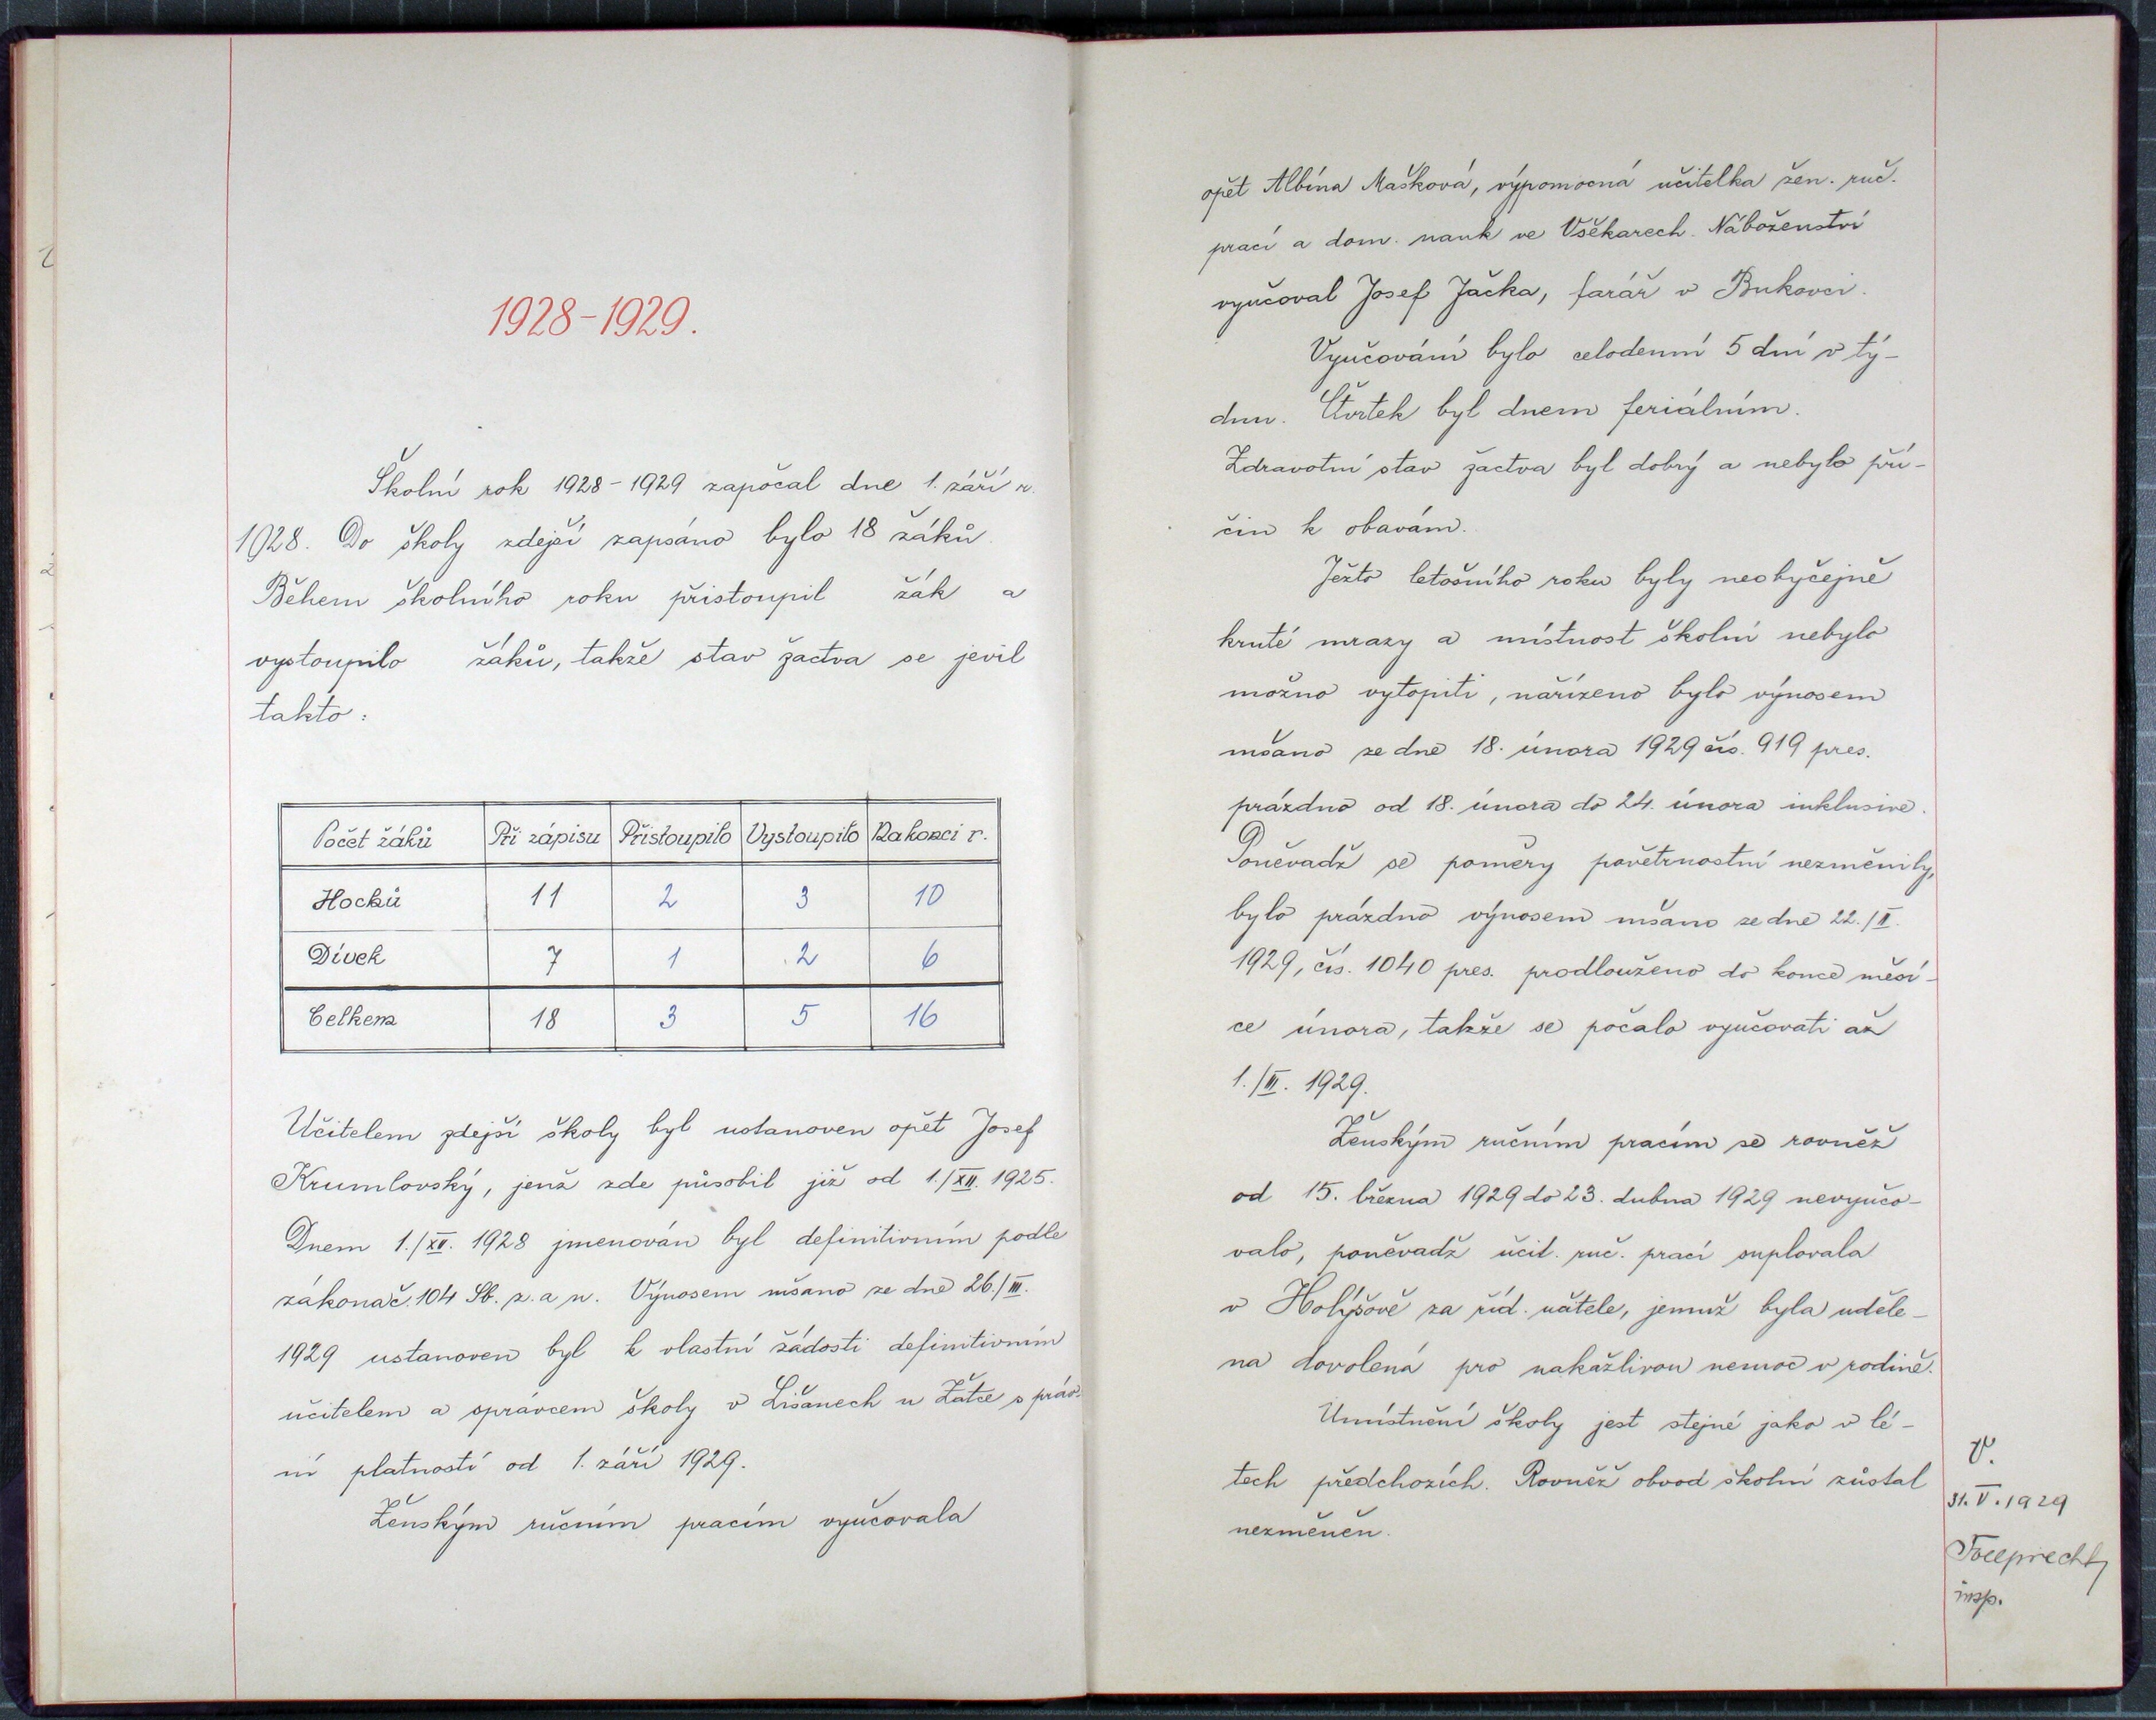 1928-1929.
Školní rok 1928-1929 započal dne 1. září r.
1928. Do školy zdejší zapsáno bylo 18 žáků.
Během školního roku přistoupil žák a
vystoupilo žáků, takže stav žactva se jevil
takto:
Počet žáků Při zápisu Přistoupilo Vystoupilo Na konci r.
Hochů 11 2 3 10
Dívek 7 1 2 6
Celkem 18 3 5 16
Učitelem zdejší školy byl ustanoven opět Josef
Krumlovský, jenž zde působil již od 1./XII. 1925.
Dnem 1./XII. 1928 jmenován byl definitivním podle
zákona č. 104 Sb. z. a n. Výnosem mšano ze dne 26./III.
1929 ustanoven byl k vlastní žádosti definitivním
učitelem a správcem školy v Lišanech u Žatce s práv-
ní platností od 1. září 1929.
Ženským ručním pracím vyučovala
opět Albína Mašková, výpomocná učitelka žen. ruč.
prací a dom. nauk ve Všekarech. Náboženství
vyučoval Josef Jačka, farář v Bukovci.
Vyučování bylo celodenní 5 dní v tý-
dnu. Čtvrtek byl dnem feriálním.
Zdravotní stav žactva byl dobrý a nebylo pří-
čin k obavám.
Ježto letošního roku byly neobyčejně
kruté mrazy a místnost školní nebylo
možno vytopiti, nařízeno bylo výnosem
mšano ze dne 18. února 1929 čís. 919 pres.
prázdno od 18. února do 24. února inklusive.
Poněvadž se poměry povětrnostní nezměnily,
bylo prázdno výnosem mšano ze dne 22./II.
1929, čís. 1040 pres. prodlouženo do konce měsí-
ce února, takže se počalo vyučovati až
1./III. 1929.
Ženským ručním pracím se rovněž
od 15. března 1929 do 23. dubna 1929 nevyučo-
valo, poněvadž učit. ruč. prací suplovala
v Holýšově za říd. učitele, jemuž byla uděle-
na dovolená pro nakažlivou nemoc v rodině.
Umístnění školy jest stejné jako v lé-
tech předchozích. Rovněž obvod školní zůstal
nezměněn.
V.
31. V. 1929
insp.